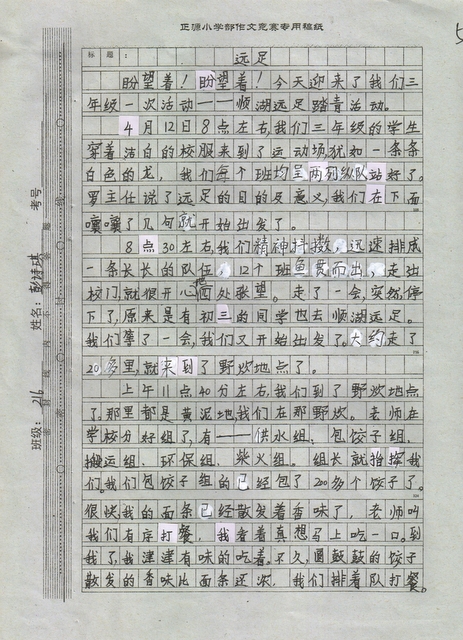 正源小学部作文竞赛专用稿纸
标题：
远足
盼望着！盼望着！今天迎来了我们三
年级一次活动——顺湖远足踏青活动。
4月12日8点左右，我们三年级的学生
穿着洁白的校服来到了运动场，犹如一条条
白色的龙，我们每个班均呈两列纵队站好了。
罗主任说了远足的目的及意义，我们在下面
嚷嚷了几句就开始出发了。
8点30左右，我们精神抖擞，迅速排成
一条长长的队伍，12个班鱼贯而出，走出
校门，就很开心地四处张望。走了一会，突然，停
下了，原来是有初三的同学也去顺湖远足。
我们等了一会，我们又开始出发了。大约走了
20多里，就来到了野炊地点了。
上午11点40分左右，我们到了野炊地点
了。那里都是黄泥地，我们在那野炊。老师在
学校分好组了，有——供水组、包饺子组、
搬运组、环保组、柴火组。组长就指挥我
们。我们包饺子组的已经包了200多个饺子了。
很快我的面条已经散发着香味了，老师叫
我们有序打餐，我看着真想马上吃一口。到
我了，我津津有味的吃着。不久，圆鼓鼓的饺子
散发的香味比面条还浓，我们排着队打餐。
考号
姓名：
班级：216